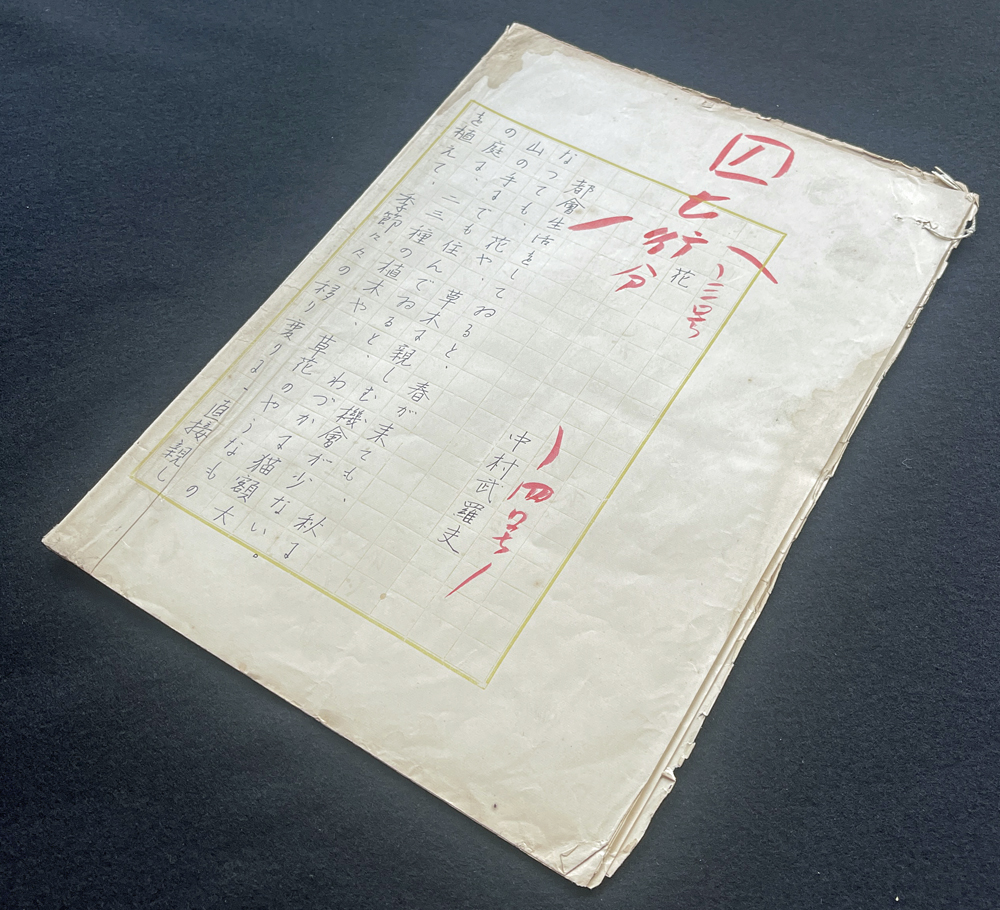 七行分
三号
花
四号
中村武羅夫
都會生活をしてゐると、春が来ても、秋に
なつても、花や、草木に親しむ機會が少ない
山の手にでも住んでゐると、わづかに猫額大
の庭に、二三種の植木や、草花のやうなもの
を植えて、季節々々の移り変りに、直接親し